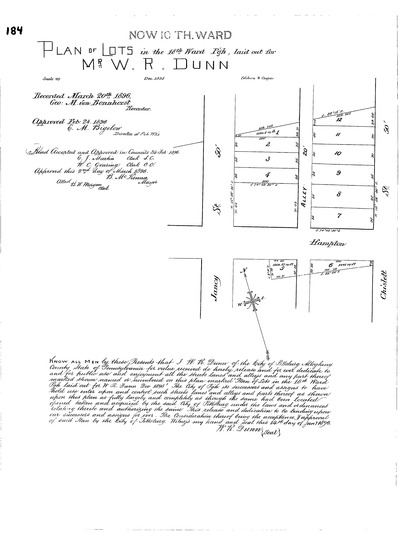 184
NOW 10 TH. WARD
PLAN OF LOTS in the 18th Ward Pgh, laid out for
MR W. R. DUNN
Dec. 1895
Recorded March 20th 1896.
Geo M. von Bonnhorst
Recorder.
Approved Feb 24. 1896
E. M. Bigelow
Director of Pub Wks
Read Accepted and Approved in Councils 24 Feb 1896
G. J. Martin Clk S.C.
W. C. Gearing Clk C.C.
Approved this 2nd day of March 1896.
B. McKenna
Mayor
Attest
Clk
1
2
3
4
12
11
10
9
8
7
50'
50'
20'
ALLEY
St.
St.
Hampton
5
6
Jancey
Chislett
N
KNOW ALL MEN by these Presents that I W R Dunn of the City of Pittsburg Allegheny
County State of Pennsylvania for value received do hereby release and for ever dedicate to
and for public use and enjoyment all the streets lanes and alleys and any part thereof
marked thereon named or numbered in this plan marked Plan of Lots in the 18th Ward
Pgh laid out for W R Dunn Dec 1895 The City of Pgh its successors and assigns to have
hold use enter upon and control such streets lanes and alleys and parts thereof as shown
upon this plan as fully largely and completely as though the same had been located
opened taken and acquired by the said City of Pittsburg under the laws and ordinances
relating thereto and authorizing the same This release and dedication to be binding upon
our successors and assigns for ever The Consideration thereof being the acceptance & approval
of said Plan by the City of Pittsburg Witness my hand and seal this 24th day of Jan'y 1896.
W R Dunn
(Seal)